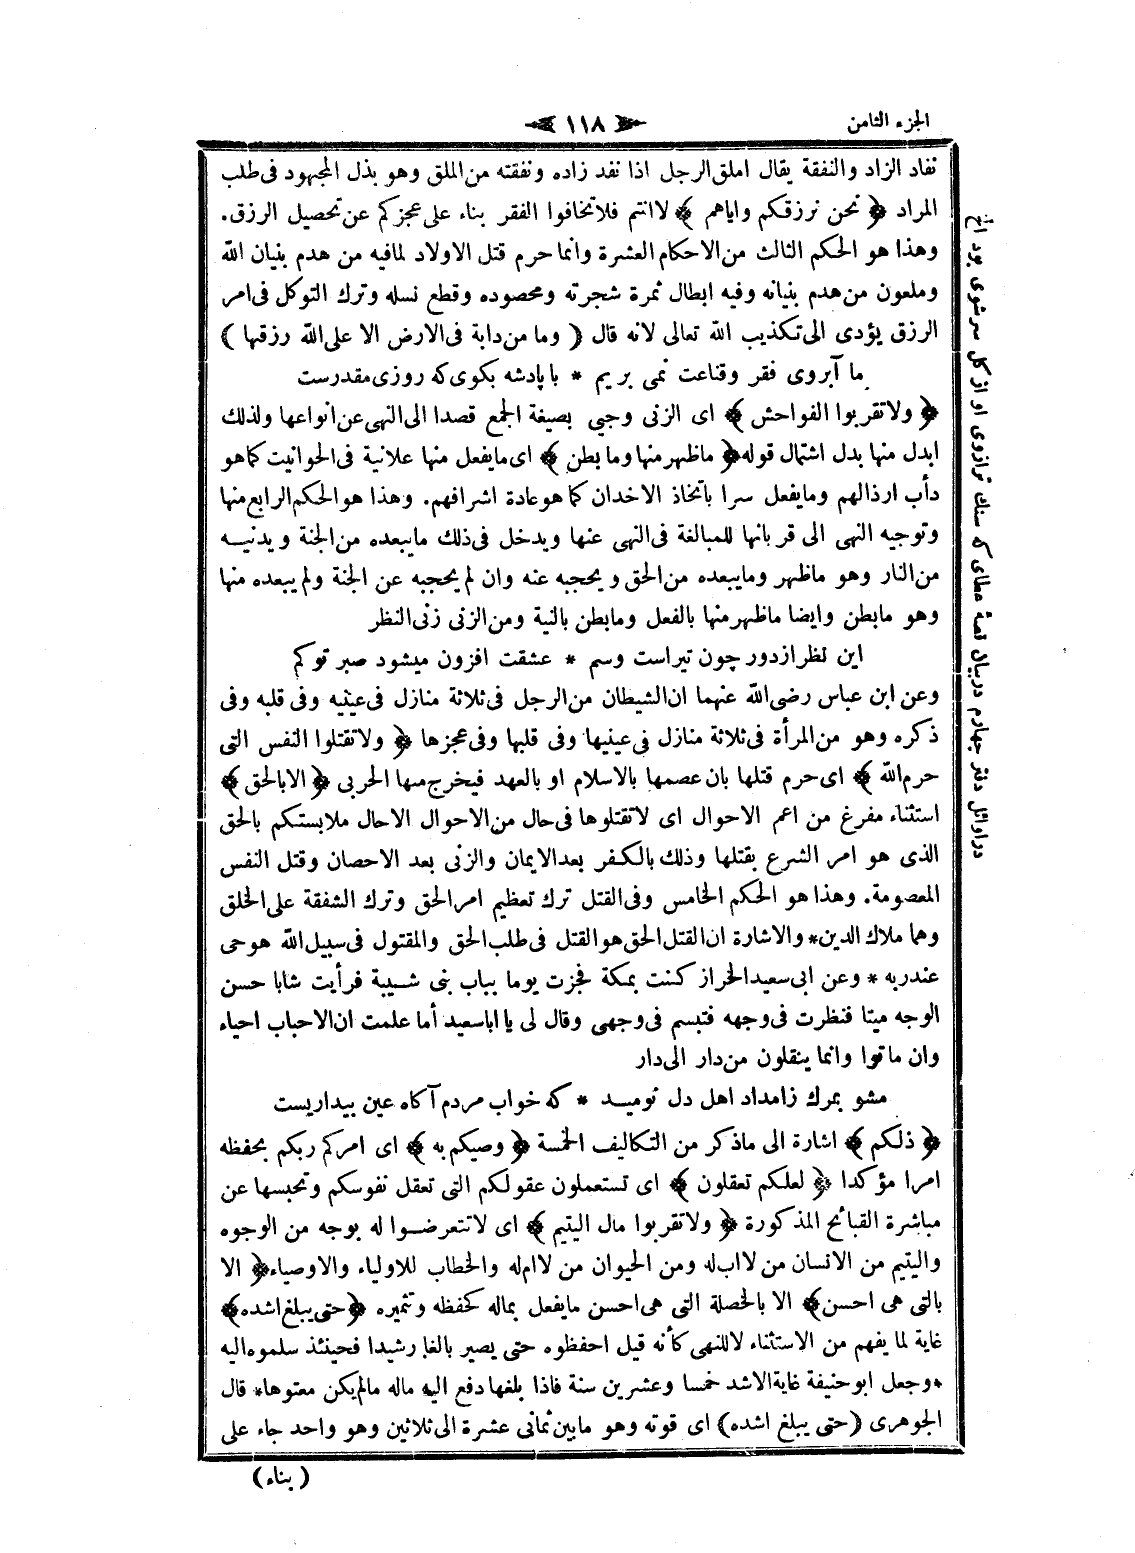 الجزء الثامن
١١٨
نفاد الزاد والنفقة يقال املق الرجل اذا نفد زاده ونفقته من الملق وهو بذل المجهود فى طلب
المراد ﴿ نحن نرزقكم واياهم ﴾ لا انتم فلا تخافوا الفقر بناء على عجزكم عن تحصيل الرزق.
وهذا هو الحكم الثالث من الاحكام العشرة وانما حرم قتل الاولاد لمافيه من هدم بنيان الله
وملعون من هدم بنيانه وفيه ابطال ثمرة شجرته ومحصوده وقطع نسله وترك التوكل فى امر
الرزق يؤدى الى تكذيب الله تعالى لانه قال ( وما من دابة فى الارض الا على الله رزقها )
ما آبروى فقر وقناعت نمى بريم * با پادشه بكوى كه روزى مقدرست
﴿ ولا تقربوا الفواحش ﴾ اى الزنى وجيئ بصيغة الجمع قصدا الى النهى عن انواعها ولذلك
ابدل منها بدل اشتمال قوله ﴿ ماظهر منها وما بطن ﴾ اى مايفعل منها علانية فى الحوانيت كما هو
دأب ارذالهم ومايفعل سرا باتخاذ الاخدان كما هو عادة اشرافهم. وهذا هو الحكم الرابع منها
وتوجيه النهى الى قربانها للمبالغة فى النهى عنها ويدخل فى ذلك مايبعده من الجنة ويدنيه
من النار وهو ماظهر ومايبعده من الحق ويحجبه عنه وان لم يحجبه عن الجنة ولم يبعده منها
وهو مابطن وايضا ماظهر منها بالفعل ومابطن بالنية ومن الزنى زنى النظر
اين نظر از دور چون تيراست وسم * عشقت افزون ميشود صبر تو كم
وعن ابن عباس رضى الله عنهما ان الشيطان من الرجل فى ثلاثة منازل فى عينيه وفى قلبه وفى
ذكره وهو من المرأة فى ثلاثة منازل فى عينيها وفى قلبها وفى عجزها ﴿ ولا تقتلوا النفس التى
حرم الله ﴾ اى حرم قتلها بان عصمها بالاسلام او بالعهد فيخرج منها الحربى ﴿ الا بالحق ﴾
استثناء مفرغ من اعم الاحوال اى لا تقتلوها فى حال من الاحوال الا حال ملابستكم بالحق
الذى هو امر الشرع بقتلها وذلك بالكفر بعد الايمان والزنى بعد الاحصان وقتل النفس
المعصومة. وهذا هو الحكم الخامس وفى القتل ترك تعظيم امر الحق وترك الشفقة على الخلق
وهما ملاك الدين * والاشارة ان القتل الحق هو القتل فى طلب الحق والمقتول فى سبيل الله هو حى
عند ربه * وعن ابى سعيد الخراز كنت بمكة فجزت يوما بباب بنى شيبة فرأيت شابا حسن
الوجه ميتا فنظرت فى وجهه فتبسم فى وجهى وقال لى يا ابا سعيد أما علمت ان الاحباب احياء
وان ماتوا وانما ينقلون من دار الى دار
مشو بمرك ز امداد اهل دل نوميد * كه خواب مردم آكاه عين بيداريست
﴿ ذلكم ﴾ اشارة الى ماذكر من التكاليف الخمسة ﴿ وصيكم به ﴾ اى امركم ربكم بحفظه
امرا مؤكدا ﴿ لعلكم تعقلون ﴾ اى تستعملون عقولكم التى تعقل نفوسكم وتحبسها عن
مباشرة القبائح المذكورة ﴿ ولا تقربوا مال اليتيم ﴾ اى لا تتعرضوا له بوجه من الوجوه
واليتيم من الانسان من لا اب له ومن الحيوان من لا ام له والخطاب للاولياء والاوصياء ﴿ الا
بالتى هى احسن ﴾ الا بالخصلة التى هى احسن مايفعل بماله كحفظه وتثميره ﴿ حتى يبلغ اشده ﴾
غاية لما يفهم من الاستثناء لا للنهى كأنه قيل احفظوه حتى يصير بالغا رشيدا فحينئذ سلموه اليه
* وجعل ابو حنيفة غاية الاشد خمسا وعشرين سنة فاذا بلغها دفع اليه ماله مالم يكن معتوها * قال
الجوهرى ( حتى يبلغ اشده ) اى قوته وهو مابين ثمانى عشرة الى ثلاثين وهو واحد جاء على
( بناء )
در اوائل دفتر چهارم دربيان قصهٔ عطاى كه سنك ترازوى او از كل سرشوى بود الخ